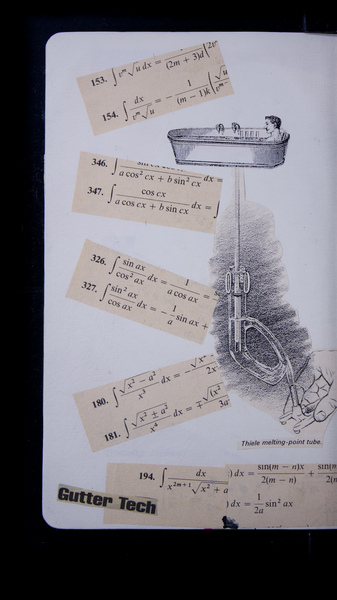 153. ∫ vᵐ √u dx = 1/((2m + 3)d
154. ∫ dx/(vᵐ √u) = − 1/((m − 1)k) ( √u/vᵐ⁻
346. ∫ /(a cos² cx + b sin² cx) dx =
347. ∫ cos cx/(a cos cx + b sin cx) dx =
326. ∫ sin ax/cos² ax dx = 1/(a cos ax) =
327. ∫ sin² ax/cos ax dx = − 1/a sin ax +
180. ∫ √(x² − a²)/x³ dx = −
181. ∫ √(x² ± a²)/x⁴ dx = ∓
Thiele melting-point tube.
194. ∫ dx/(x²ᵐ⁺¹ √(x² + a
) dx = sin(m − n)x/(2(m − n)) +
) dx = 1/(2a) sin² ax
Gutter Tech